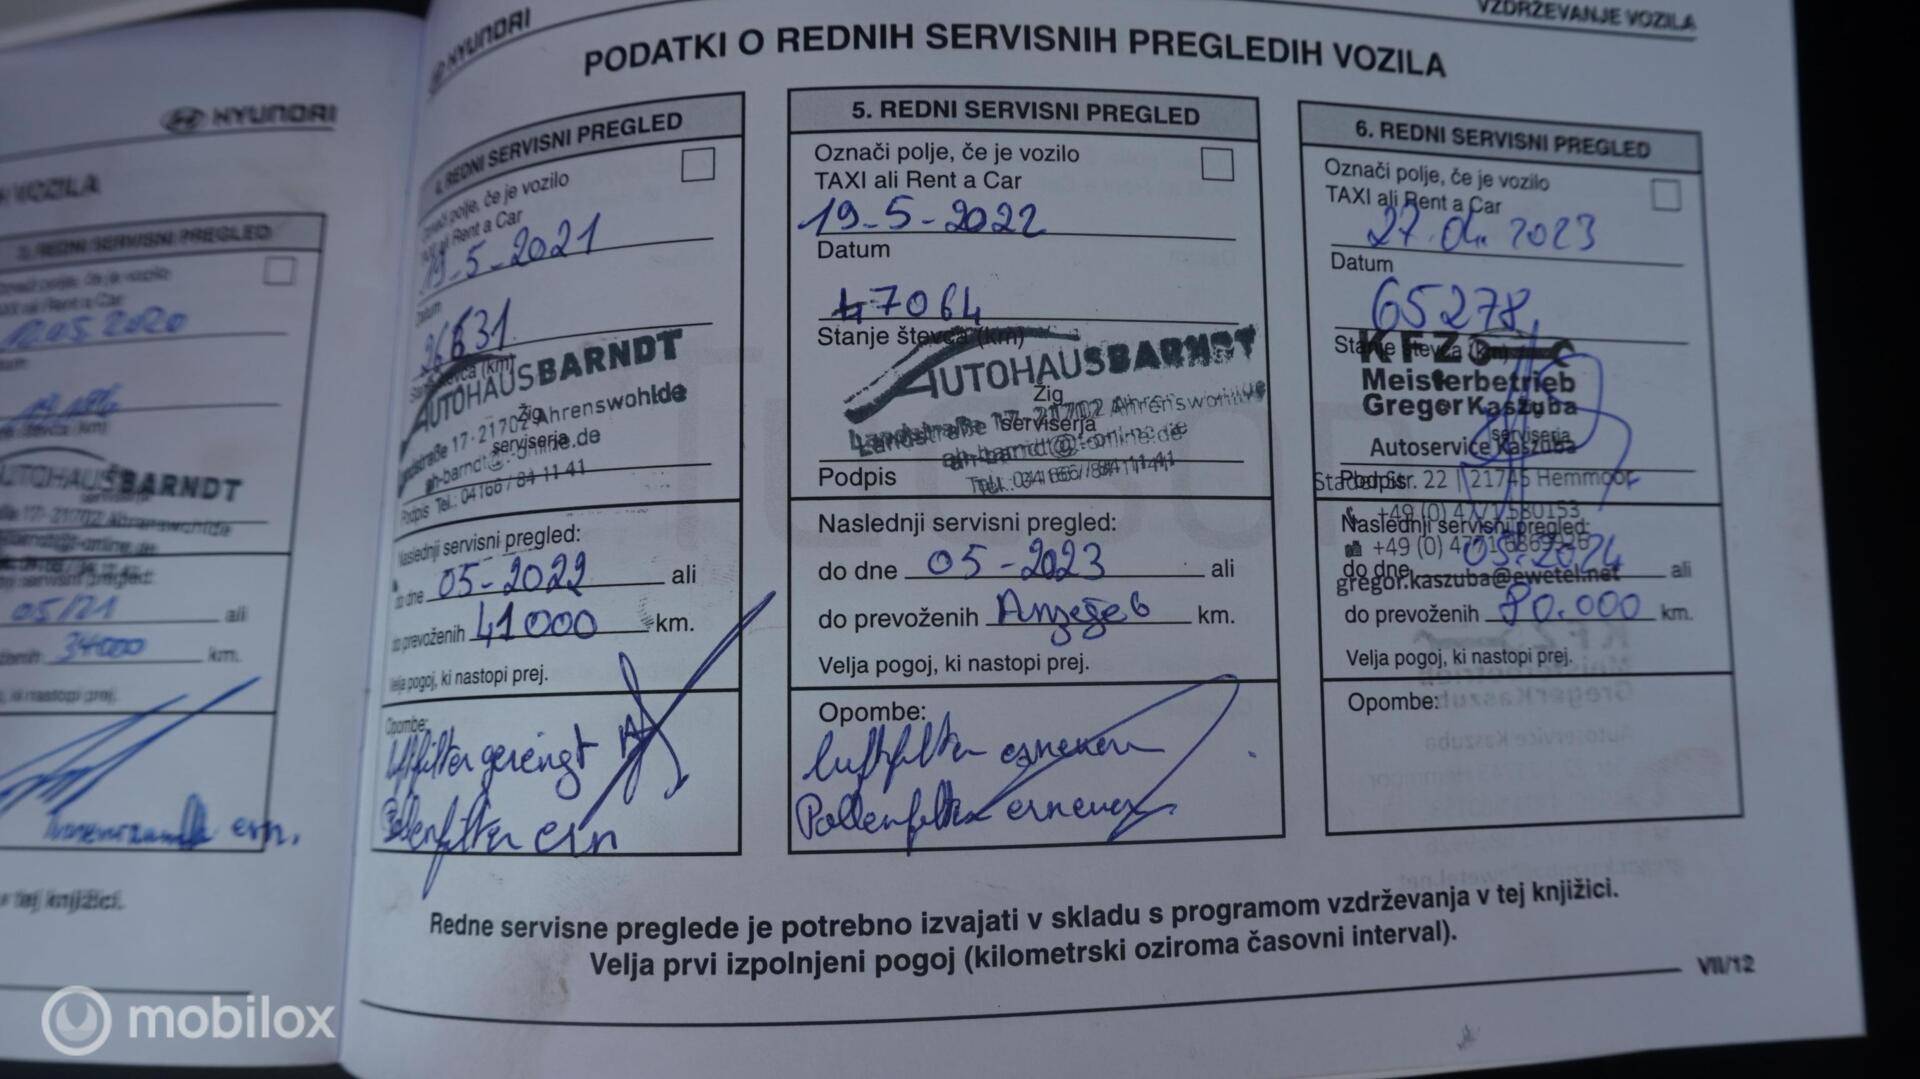 HYUNDAI
VOZILA
3. REDNI SERVISNI PREGLED
12.05.2020
AUTOHAUSBARNDT
05/21 ali
34000 km.
ern.
v tej knjižici.
HYUNDAI
VZDRŽEVANJE VOZILA
PODATKI O REDNIH SERVISNIH PREGLEDIH VOZILA
4. REDNI SERVISNI PREGLED
Označi polje, če je vozilo
TAXI ali Rent a Car
19-5-2021
Datum
Stanje števca (km)
AUTOHAUSBARNDT
Žig
Landstraße 17 · 21702 Ahrenswohlde
serviserja
ah-barndt@t-online.de
Podpis Tel.: 04166 / 84 11 41
Naslednji servisni pregled:
do dne 05-2022 ali
do prevoženih 41000 km.
Velja pogoj, ki nastopi prej.
Opombe:
Luftfilter gereingt
Pollenfilter ern
5. REDNI SERVISNI PREGLED
Označi polje, če je vozilo
TAXI ali Rent a Car
19-5-2022
Datum
47064
Stanje števca (km)
AUTOHAUSBARNDT
Žig
Landstraße 17 · 21702 Ahrenswohlde
serviserja
ah-barndt@t-online.de
Podpis Tel.: 04166 / 84 11 41
Naslednji servisni pregled:
do dne 05-2023 ali
do prevoženih km.
Velja pogoj, ki nastopi prej.
Opombe:
Luftfilter erneuern
Pollenfilter erneuern
6. REDNI SERVISNI PREGLED
Označi polje, če je vozilo
TAXI ali Rent a Car
27.04.2023
Datum
65278
Stanje števca (km)
KFZ
Meisterbetrieb
Gregor Kaszuba
serviserja
Autoservice Kaszuba
Podpis
Stader Str. 22 | 21745 Hemmoor
+49 (0) 4771 580153
Naslednji servisni pregled:
+49 (0) 4771
do dne 05.2024 ali
gregor.kaszuba@ewetel.net
do prevoženih 80.000 km.
Velja pogoj, ki nastopi prej.
Opombe:
Redne servisne preglede je potrebno izvajati v skladu s programom vzdrževanja v tej knjižici.
Velja prvi izpolnjeni pogoj (kilometrski oziroma časovni interval).
VII/12
mobilox